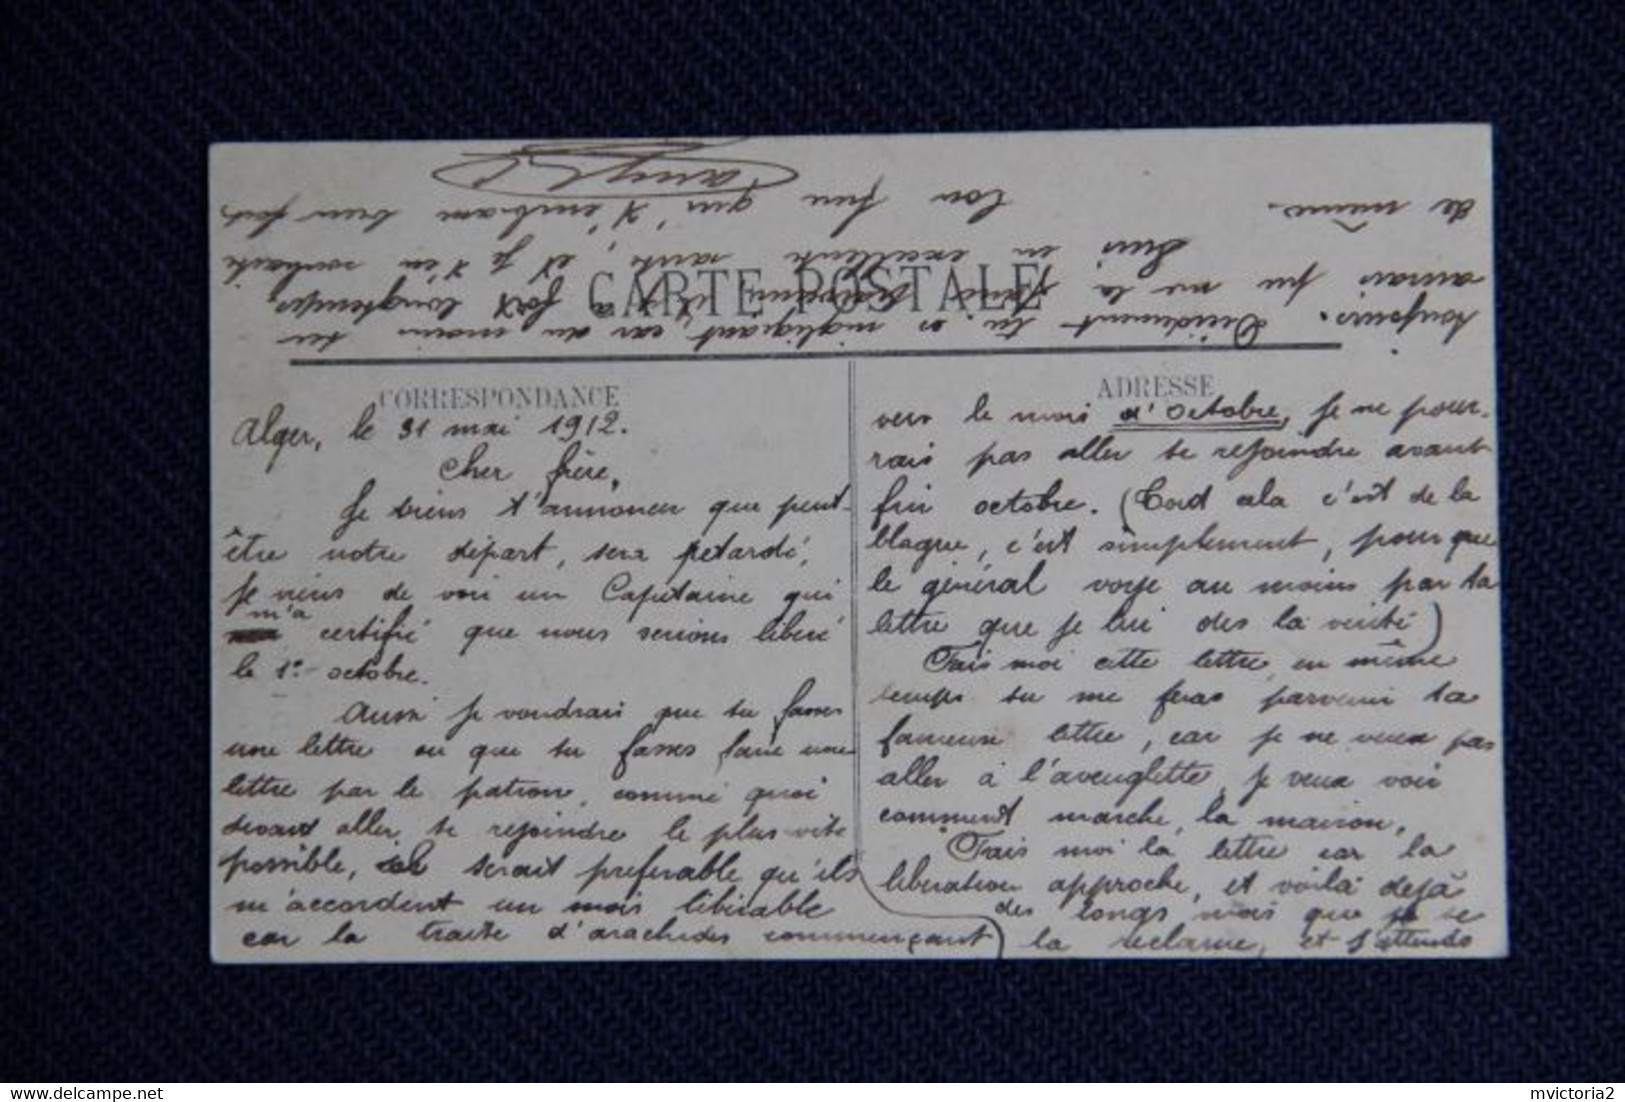 CARTE POSTALE
CORRESPONDANCE
Alger, le 31 mai 1912.
Cher frère,
Je viens t'annoncer que peut-
être notre départ, sera retardé,
je viens de voir un Capitaine qui
m'a certifié que nous serions libéré
le 1er octobre.
Aussi je voudrais que tu fasses
une lettre ou que tu fasses faire une
lettre par le patron, comme quoi
devant aller te rejoindre le plus vite
possible, il serait preferable qu'ils
m'accordent un mois libérable
car la traite d'arachides commençant
ADRESSE
vers le mois d'octobre, je ne pour-
rais pas aller te rejoindre avant
fin octobre. (Tout cela c'est de la
blague, c'est simplement, pour que
le général voye au moins par ta
lettre que je lui dis la vérité)
Fais moi cette lettre, en même
temps tu me feras parvenir ta
fameuse lettre, car je ne veux pas
aller à l'aveuglette, je veux voir
comment marche, la maison,
Fais moi la lettre car la
libération approche, et voilà dejà
des longs mois que je te
la réclame, et j'attends
toujours. Décidement tu es négligeant, car du moins tu
aurais pu me la faire il y a fort longtemps.
Suis en excellente santé, et je t'en souhaite
de même.
Ton frère qui t'embrasse bien fort